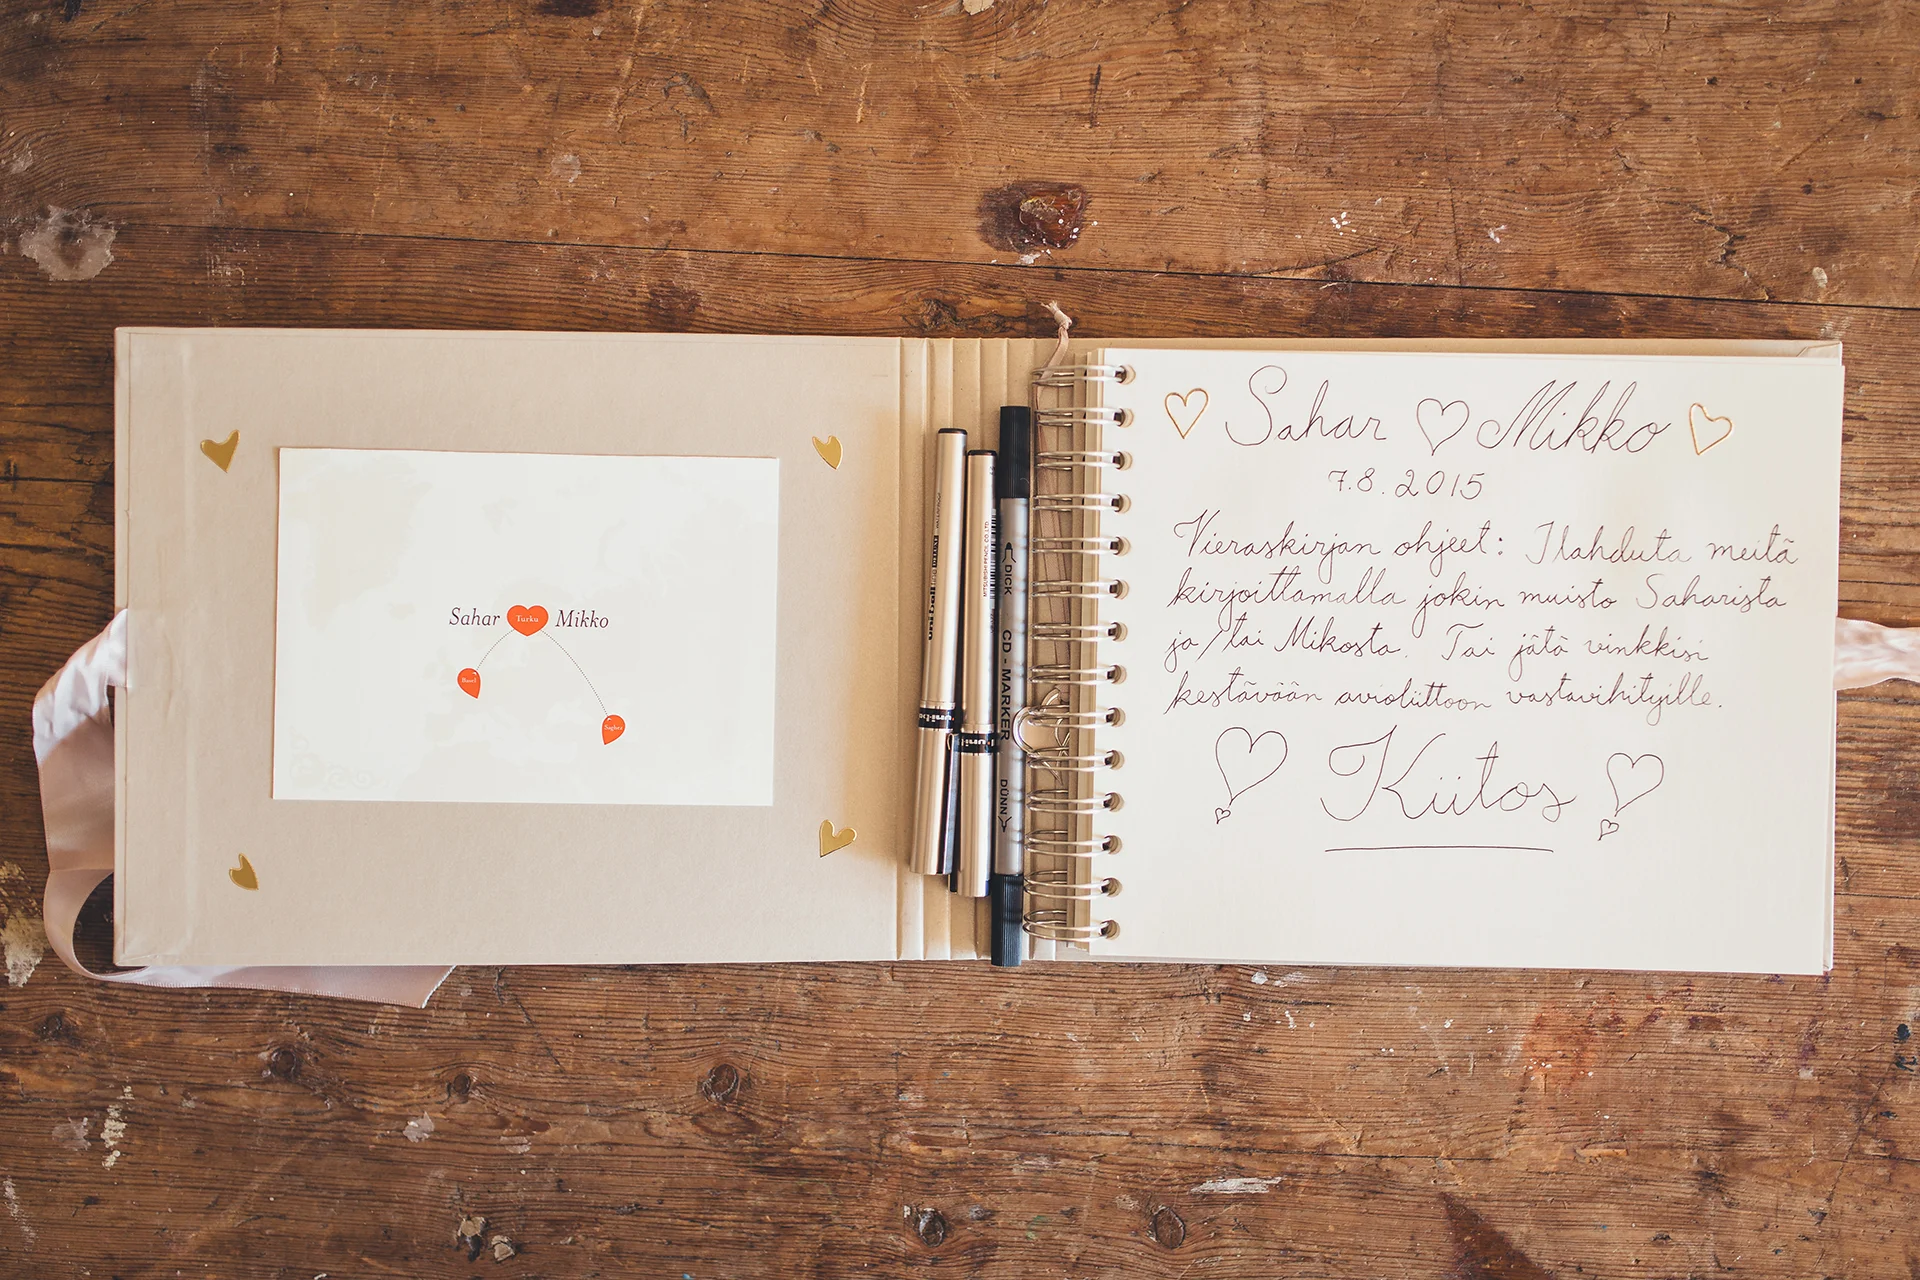 Sahar Turku Mikko
Basel
uni-ball
MITSUBISHI PENCIL CO. LTD
DICK
CD-MARKER
DÜNN
Sahar Mikko
7.8.2015
Vieraskirjan ohjeet: Ilahduta meitä
kirjoittamalla jokin muisto Saharista
ja/tai Mikosta. Tai jätä vinkkisi
kestävään avioliittoon vastavihityille.
Kiitos